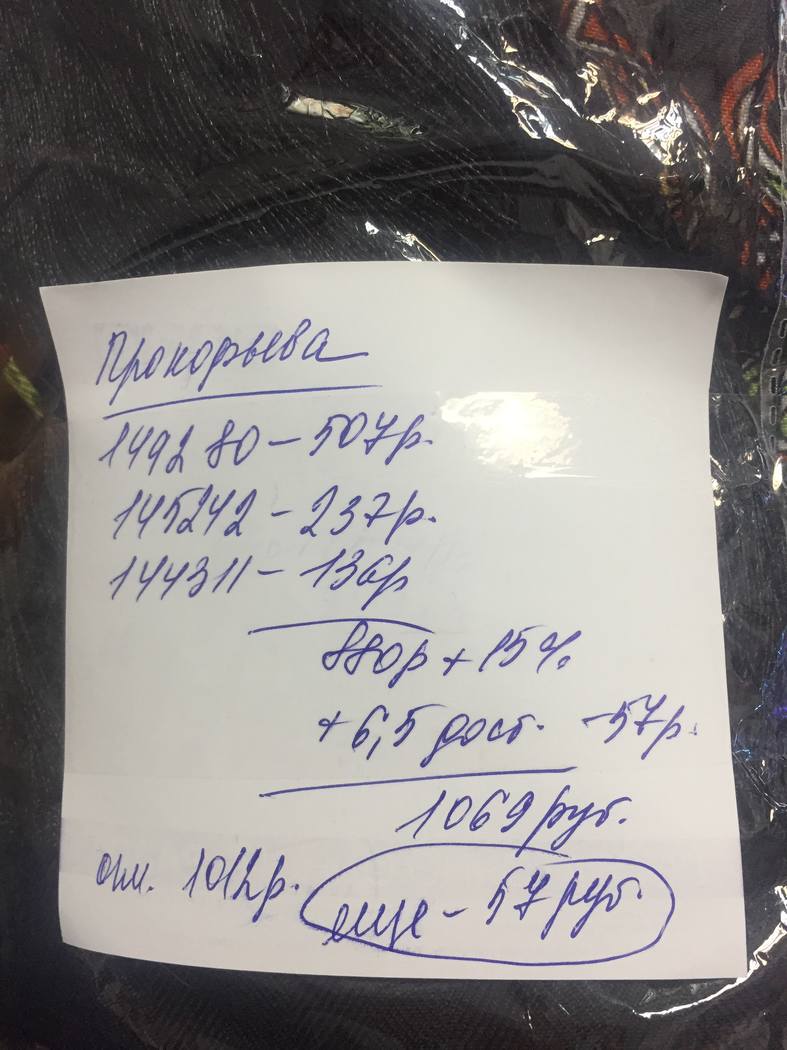 Прокофьева
149280 – 507р.
145242 – 237р.
144311 – 136р
880р + 15%
+ 6,5 дост. – 57р.
1069 руб.
опл. 1012р.
еще – 57 руб.